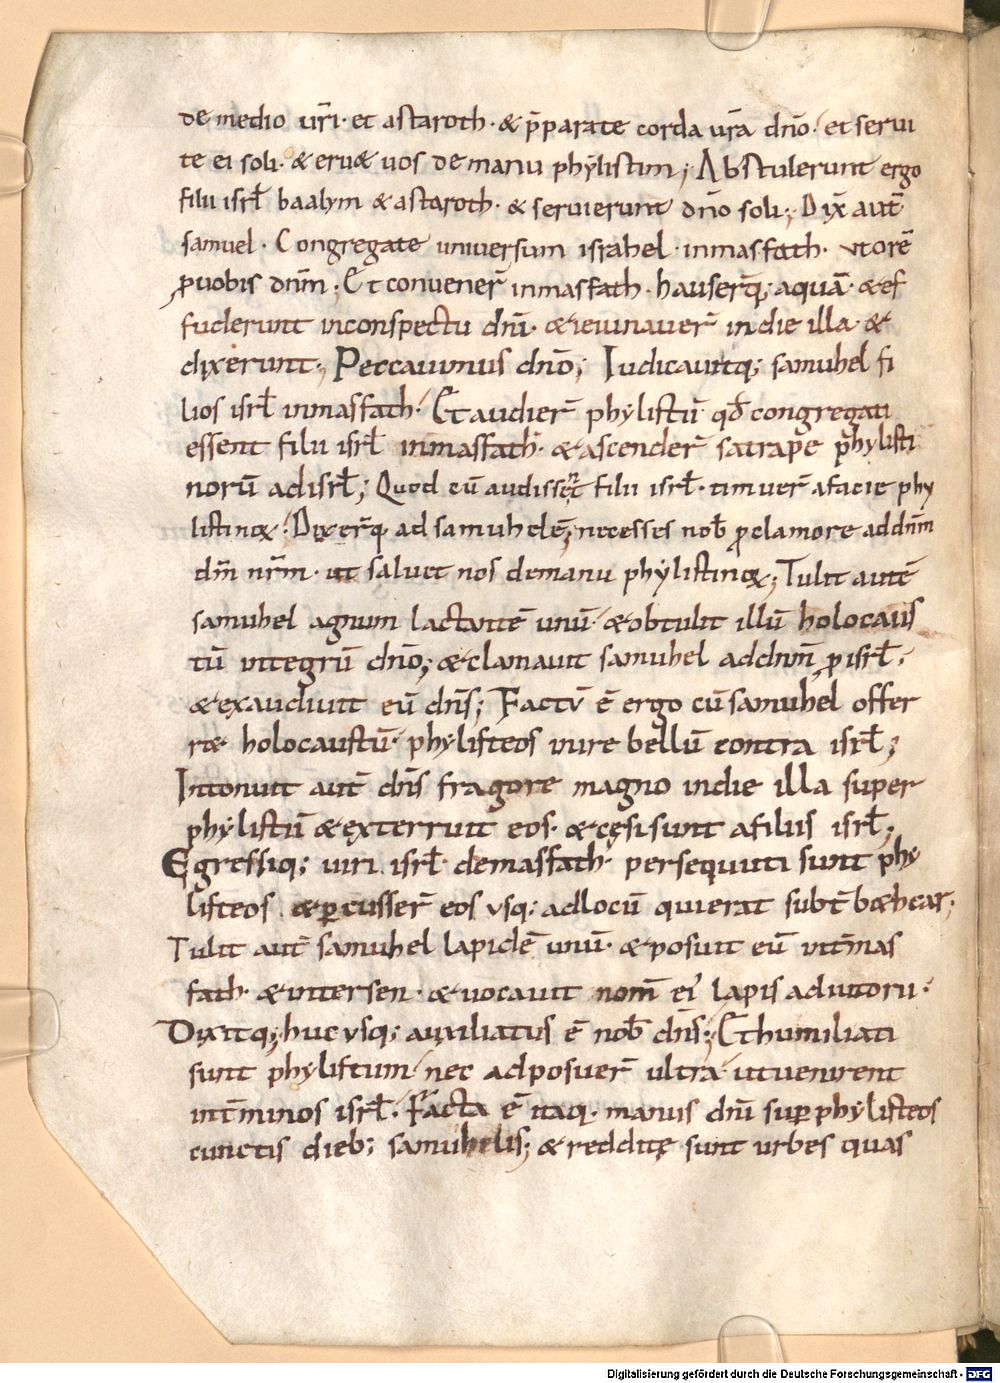 de medio ur̄i· et astaroth· & p̄parate corda ur̄a dn̄o· et serui
te ei soli· & eru& uos de manu phẏlistim; Abstulerunt ergo
filii isrł baalym & astaroth· & seruierunt dn̄o soli; Dix̄ aut̄
samuel· Congregate uniuersum israhel inmasfath· vtorē
ꝓuobis dnm̄; Et conuener̄ inmasfath· hauserq̄; aquā· & ef
fuderunt inconspectu dnī· & ieiunauer̄ indie illa· &
dixerunt· Peccauimus dn̄o; Iudicauitq; samuhel fi
lios isrł inmasfath· Et audier̄ phẏlistiī qđ congregati
essent filii isrł inmasfath· & ascender̄ satrape phẏlisti
norū adisrł; Quod cū audissēt filii isrł· timuer̄ afacie phy
listinoꝝ· Dixer̄q ad samuhelē; necesses nob̄ ꝓclamore addnm̄
dm̄ nr̄m· ut saluet nos demanu phẏlistinoꝝ; Tulit autē
samuhel agnum lactantē unū· & obtulit illū holocaus
tū integrū dn̄o; & clamauit samuhel addnm̄ ꝓisrł;
& exaudiuit eū dn̄s; Factū ē ergo cū samuhel offer
r& holocaustū· phẏlisteos inire bellū contra isrł;
Intonuit aut̄ dn̄s fragore magno indie illa super
phẏlistiī & exterruit eos· & cęsi sunt afiliis isrł;
Egressiq; uiri isrł demasfath· persequuti sunt phẏ
listeos & ꝑcusser̄ eos vsq; adlocū qui erat subt̄ b&hcar;
Tulit aut̄ samuhel lapidē unū· & posuit eū int̄mas
fath· & intersen· & uocauit nom̄ ei' lapis adiutorii·
Dixitq; huc vsq; auxiliatus ē nob̄ dn̄s; Et humiliati
sunt phylistiim nec adposuer̄ ultra· ut uenirent
int̄minos isrł· Facta ē itaq· manus dnī suꝑ phẏlisteos
cunctis dieb; samuhelis; & redditę sunt urbes quas
Digitalisierung gefördert durch die Deutsche Forschungsgemeinschaft - DFG